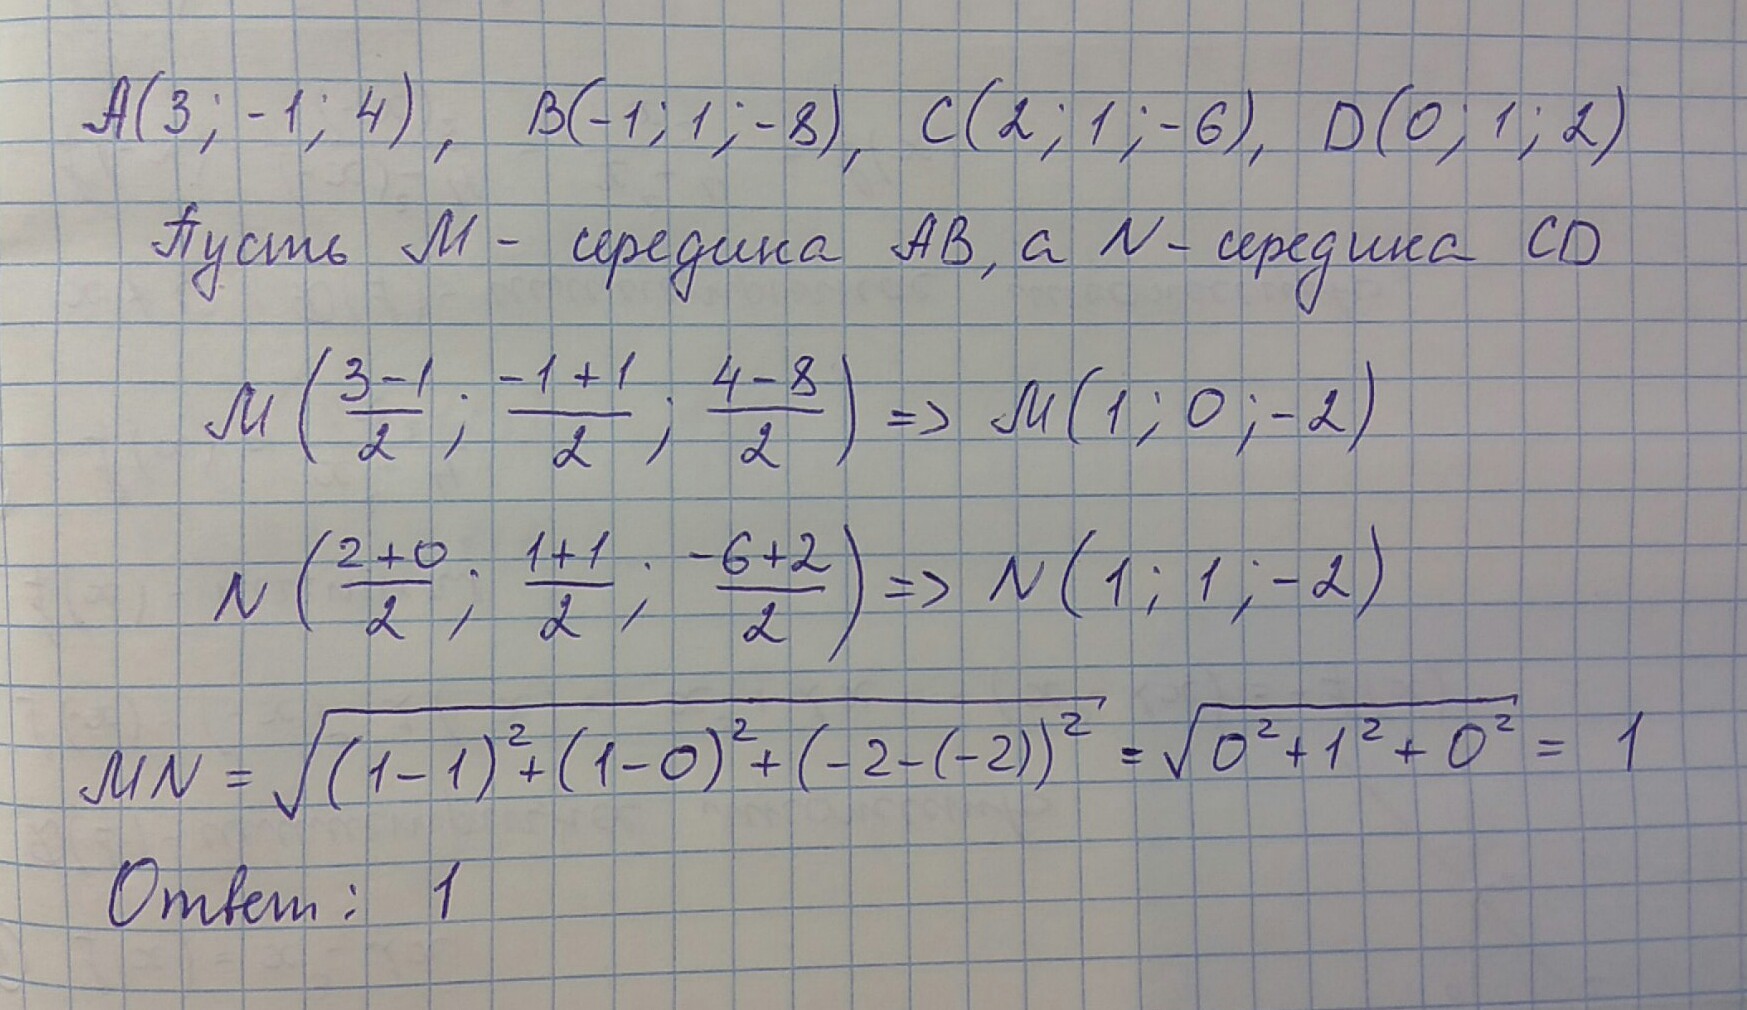 A(3; -1; 4), B(-1; 1; -8), C(2; 1; -6), D(0; 1; 2)
Пусть M - середина AB, а N - середина CD
M((3-1)/2; (-1+1)/2; (4-8)/2) => M(1; 0; -2)
N((2+0)/2; (1+1)/2; (-6+2)/2) => N(1; 1; -2)
MN = √((1-1)²+(1-0)²+(-2-(-2))²) = √(0²+1²+0²) = 1
Ответ: 1